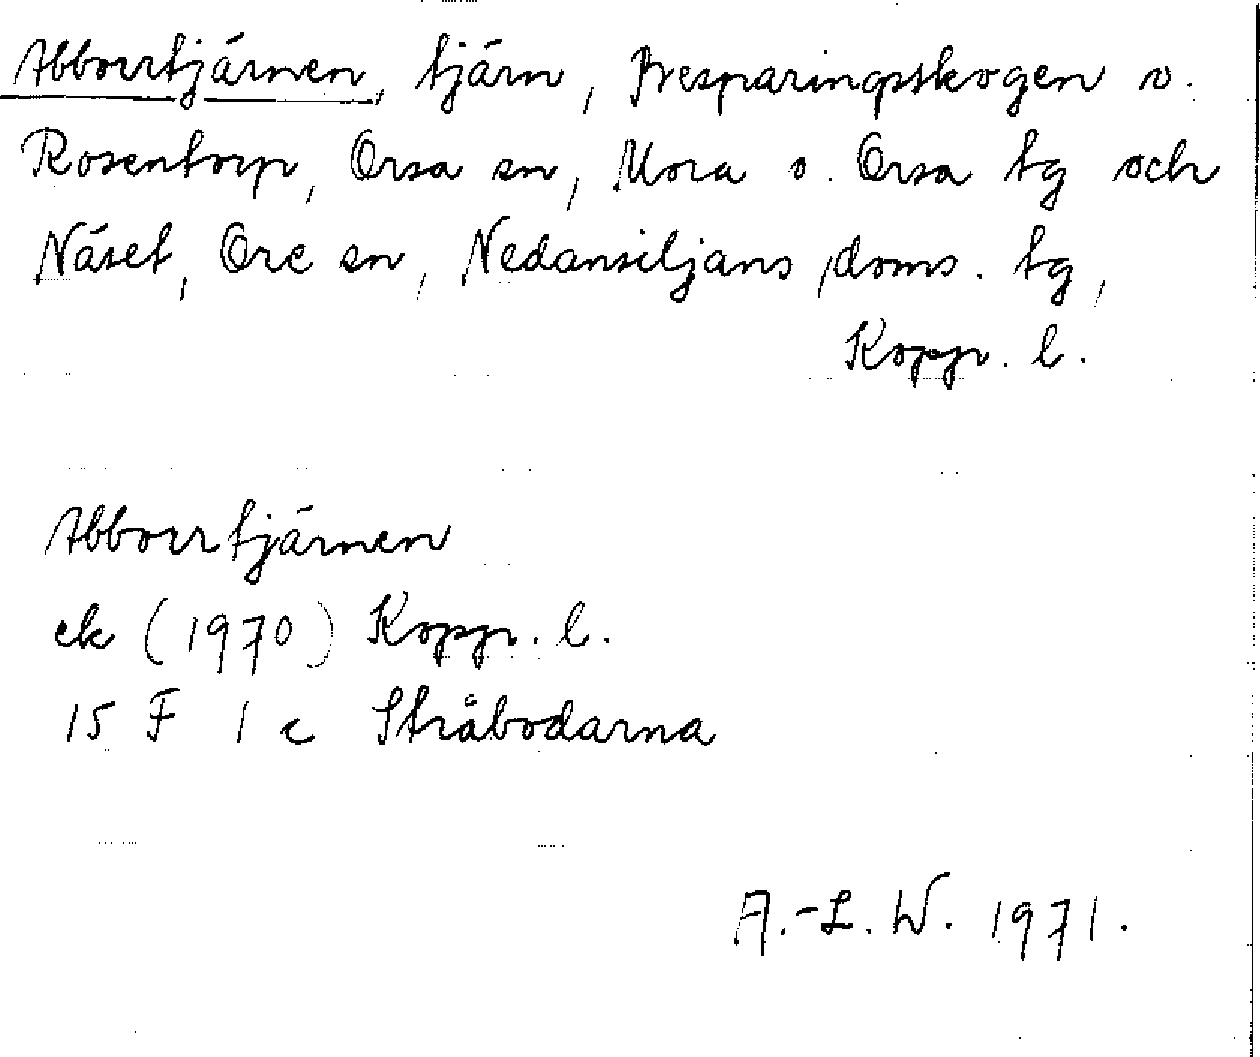 Abborrtjärnen, tjärn, Besparingsskogen o.
Rosentorp, Orsa sn, Mora o. Orsa tg och
Näset, Ore sn, Nedansiljans doms. tg,
Kopp. l.
Abborrtjärnen
ek (1970) Kopp. l.
15 F 1 c Stråbodarna
A.-L. W. 1971.